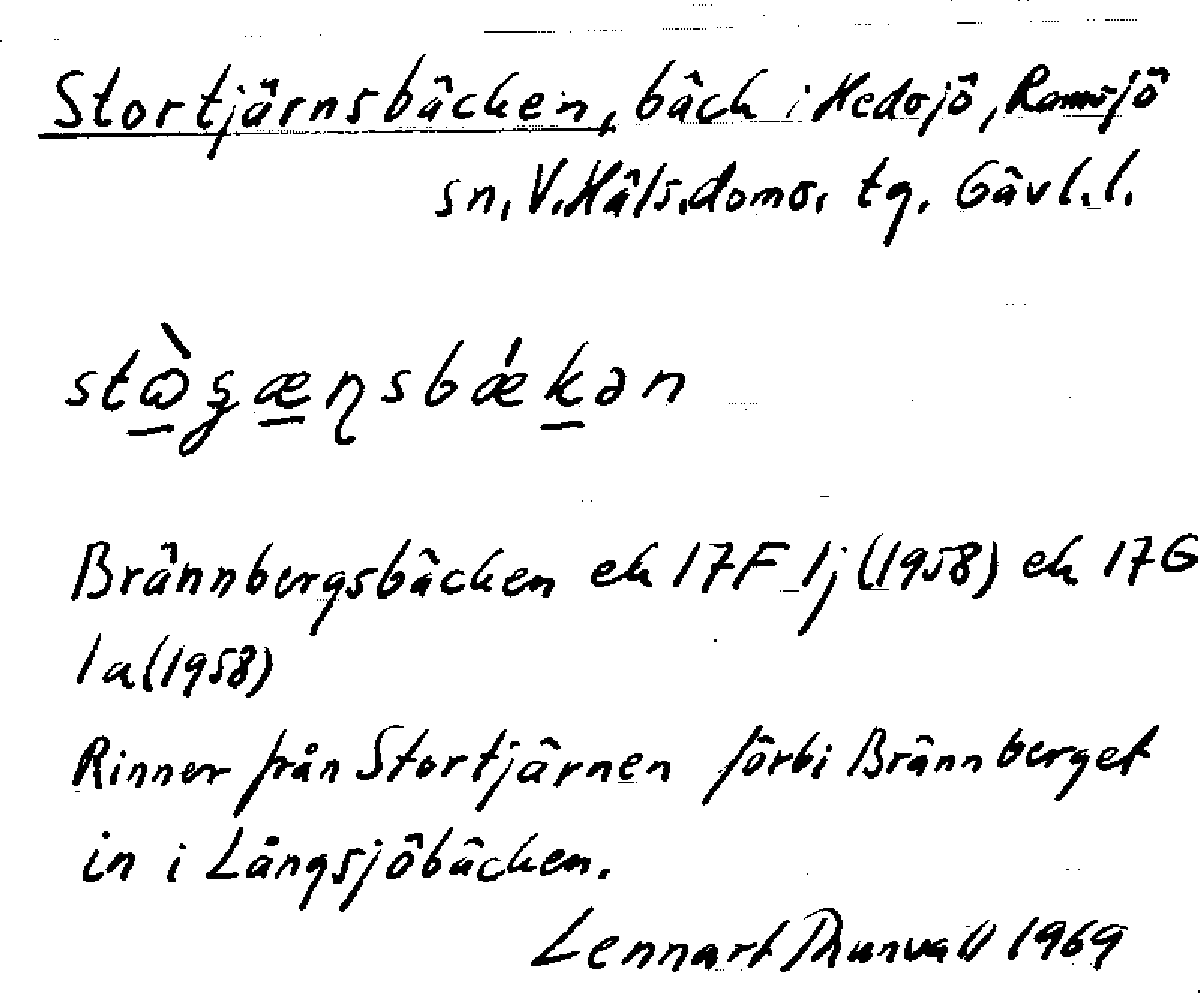 Stortjärnsbäcken, bäck i Hedsjö, Ramsjö
sn, V. Häls. doms. tg. Gävl. l.
Brännbergsbäcken ek 17F 1j (1958) ek 17G
1a (1958)
Rinner från Stortjärnen förbi Brännberget
in i Långsjöbäcken.
Lennart Thunvall 1969